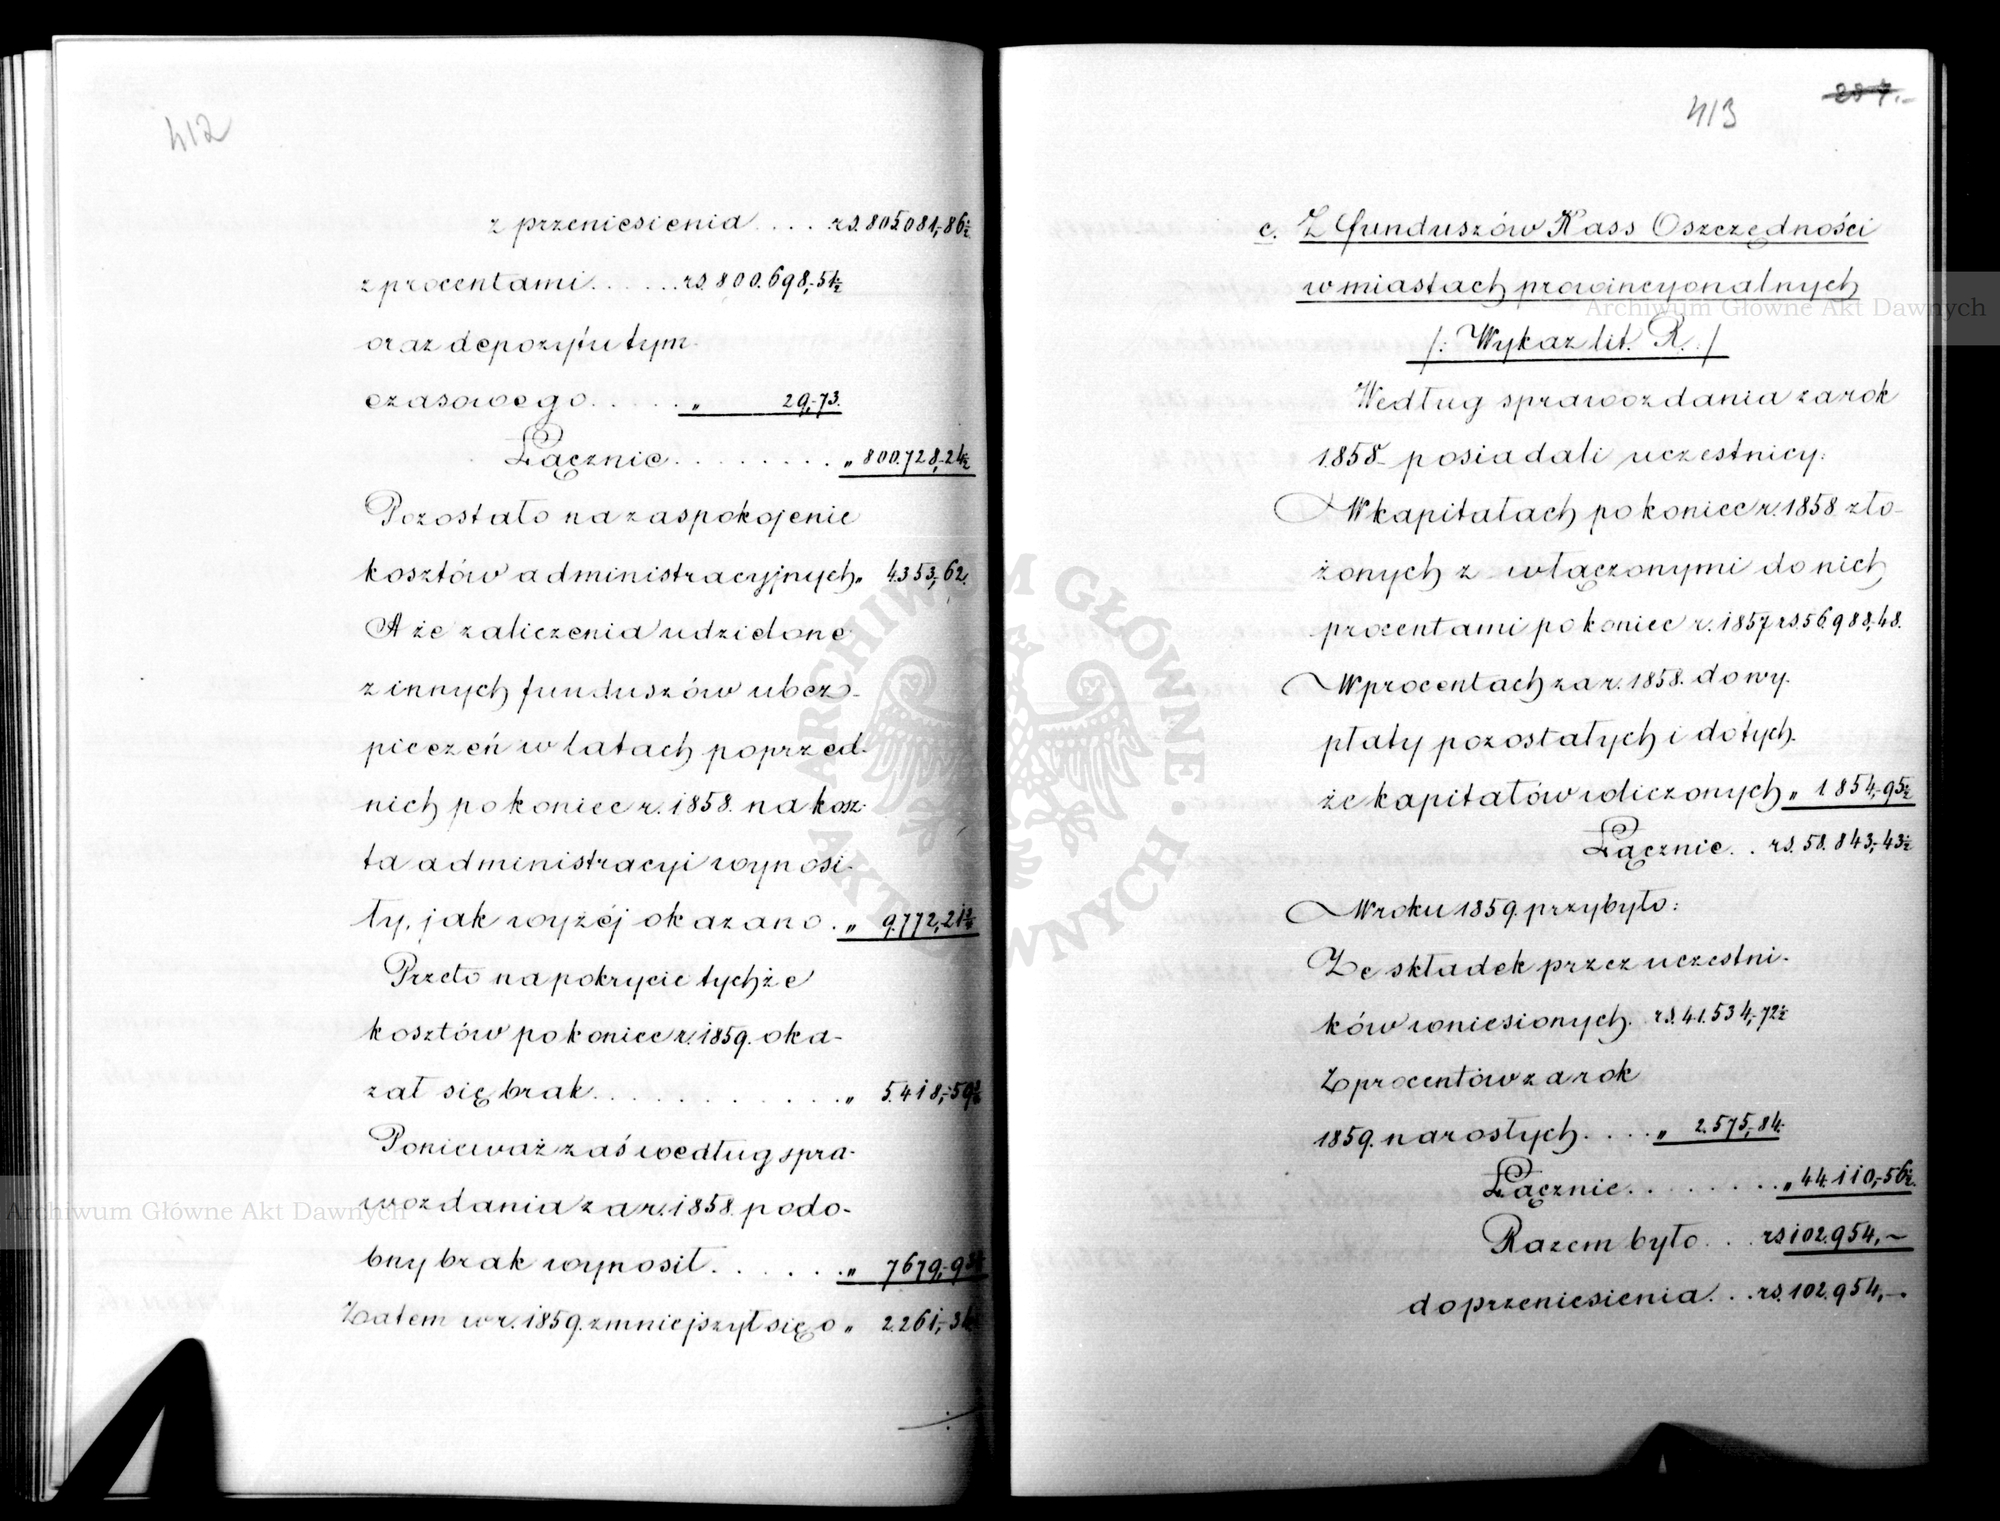 412
z przeniesienia . . . . rs. 805.081,-86½
z procentami . . . . . . rs. 800.698,-51½
oraz depozytu tym-
czasowego . . . . . „ 29,-73.
Łącznie . . . . . . . . „ 800.728,-24½
Pozostało na zaspokojenie
kosztów administracyjnych „ 4.353,-62.
A że zaliczenia udzielone
z innych funduszów ubez-
pieczeń w latach poprzed-
nich po koniec r. 1858. na kosz-
ta administracyi wynosi-
ły, jak wyżéj okazano . „ 9.772,-21½
Przeto na pokrycie tychże
kosztów po koniec r. 1859. oka-
zał się brak . . . . . . . . . . . . „ 5.418,-59½
Ponieważ zaś według spra-
wozdania za r. 1858. podo-
bny brak wynosił . . . . . . „ 7679,-93½
Zatem w r. 1859. zmniejszył się o „ 2.261,-34
413
237.-
c. Z funduszów Kass Oszczędności
w miastach prowincyonalnych
/: Wykaz lit. R. :/
Według sprawozdania za rok
1858 posiadali uczestnicy:
W kapitałach po koniec r. 1858 zło-
żonych z włączonymi do nich
procentami po koniec r. 1857 rs. 56.988,-48.
W procentach za r. 1858. do wy-
płaty pozostałych i do tych-
że kapitałów wliczonych „ 1.854,-95½
Łącznie . . rs. 58.843,-43½
W roku 1859. przybyło:
Ze składek przez uczestni-
ków wniesionych . rs. 41.534,-72½
Z procentów za rok
1859. narosłych . . . . „ 2.575,-84.
Łącznie . . . . . . . . „ 44.110,-56½
Razem było . . . rs. 102.954,-
do przeniesienia . . . rs. 102.954,-
Archiwum Główne Akt Dawnych
Archiwum Główne Akt Dawnych
ARCHIWUM GŁÓWNE AKT DAWNYCH